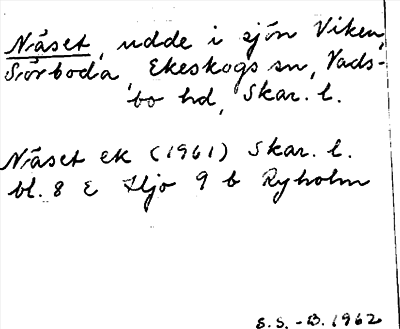 Näset, udde i sjön Viken,
Sörboda, Ekeskogs sn, Vads-
bo hd, Skar. l.
Näset ek (1961) Skar. l.
bl. 8 E Hjo 9 b Ryholm
S.S. -B. 1962